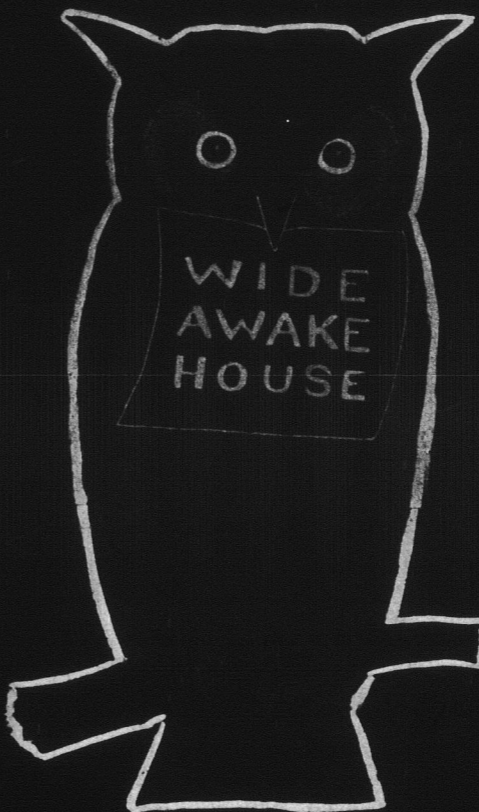 WIDE
AWAKE
HOUSE